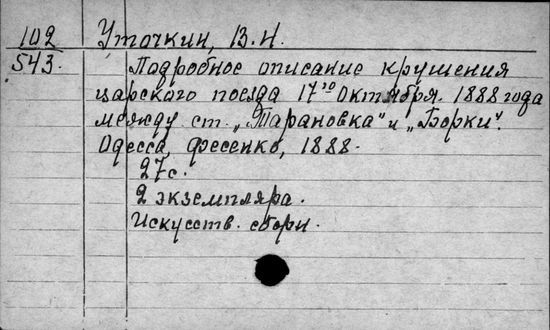 102 Уточкин, В.Н.
543. Подробное описание крушения
царского поезда 17го Октября 1888 года
между ст. „Тарановка“ и „Борки“.
Одесса, Фесенко, 1888.
27с.
2 экземпляра.
Искусств. сборн.